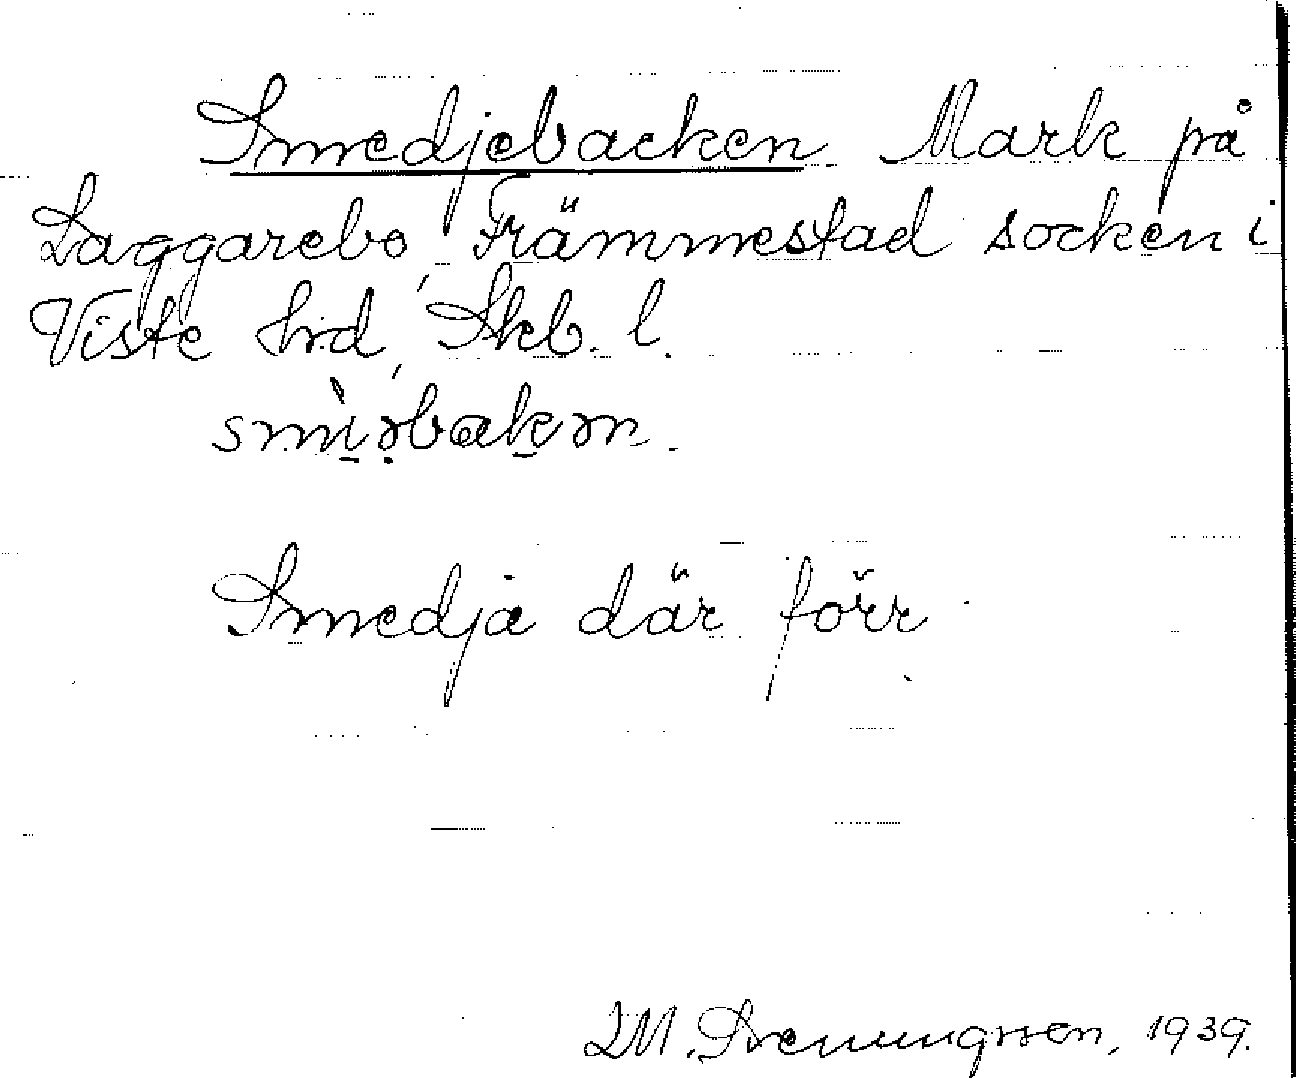 Smedjebacken Mark på
Laggarebo, Främmestad socken i
Viste hd, Skb. l.
smìəbakən.
Smedja där förr.
1939.